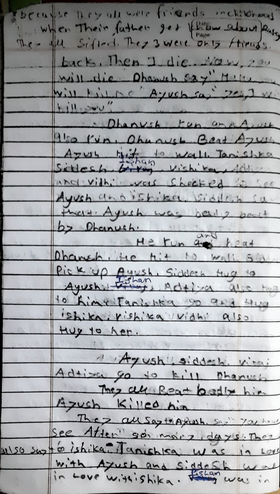 because they all were friends in childhood
when Their father get know about
Then all Sifted. They were only friends
back. Then I die. Now, you
will die Dhanush say "
will kill me" Ayush say,
kill you"
Dhanush run and Ayush
also run. Dhanush Beat Ayush
Ayush Hit to wall. Tanishka
Siddesh Ishan Vishika,
and vidhi was Shocked to see
Ayush and ishika. Siddesh sa
that Ayush was badly beat
by Dhanush.
He run and beat
Dhanush. He hit to wall.
Pick up Ayush. Siddesh Hug to
Ayush Ishan, Aditya also Hug
to him. Tanishka go and Hug
ishika. vishika vidhi also
Hug to her.
Ayush Siddesh
Aditya go to kill Dhanush
They all Beat badly him
Ayush Killed him
They all say to Ayush.
See After so many days. They
also say to ishika. Tanishka was in love
with Ayush and Siddesh was
in Love with ishika. Ishan was in